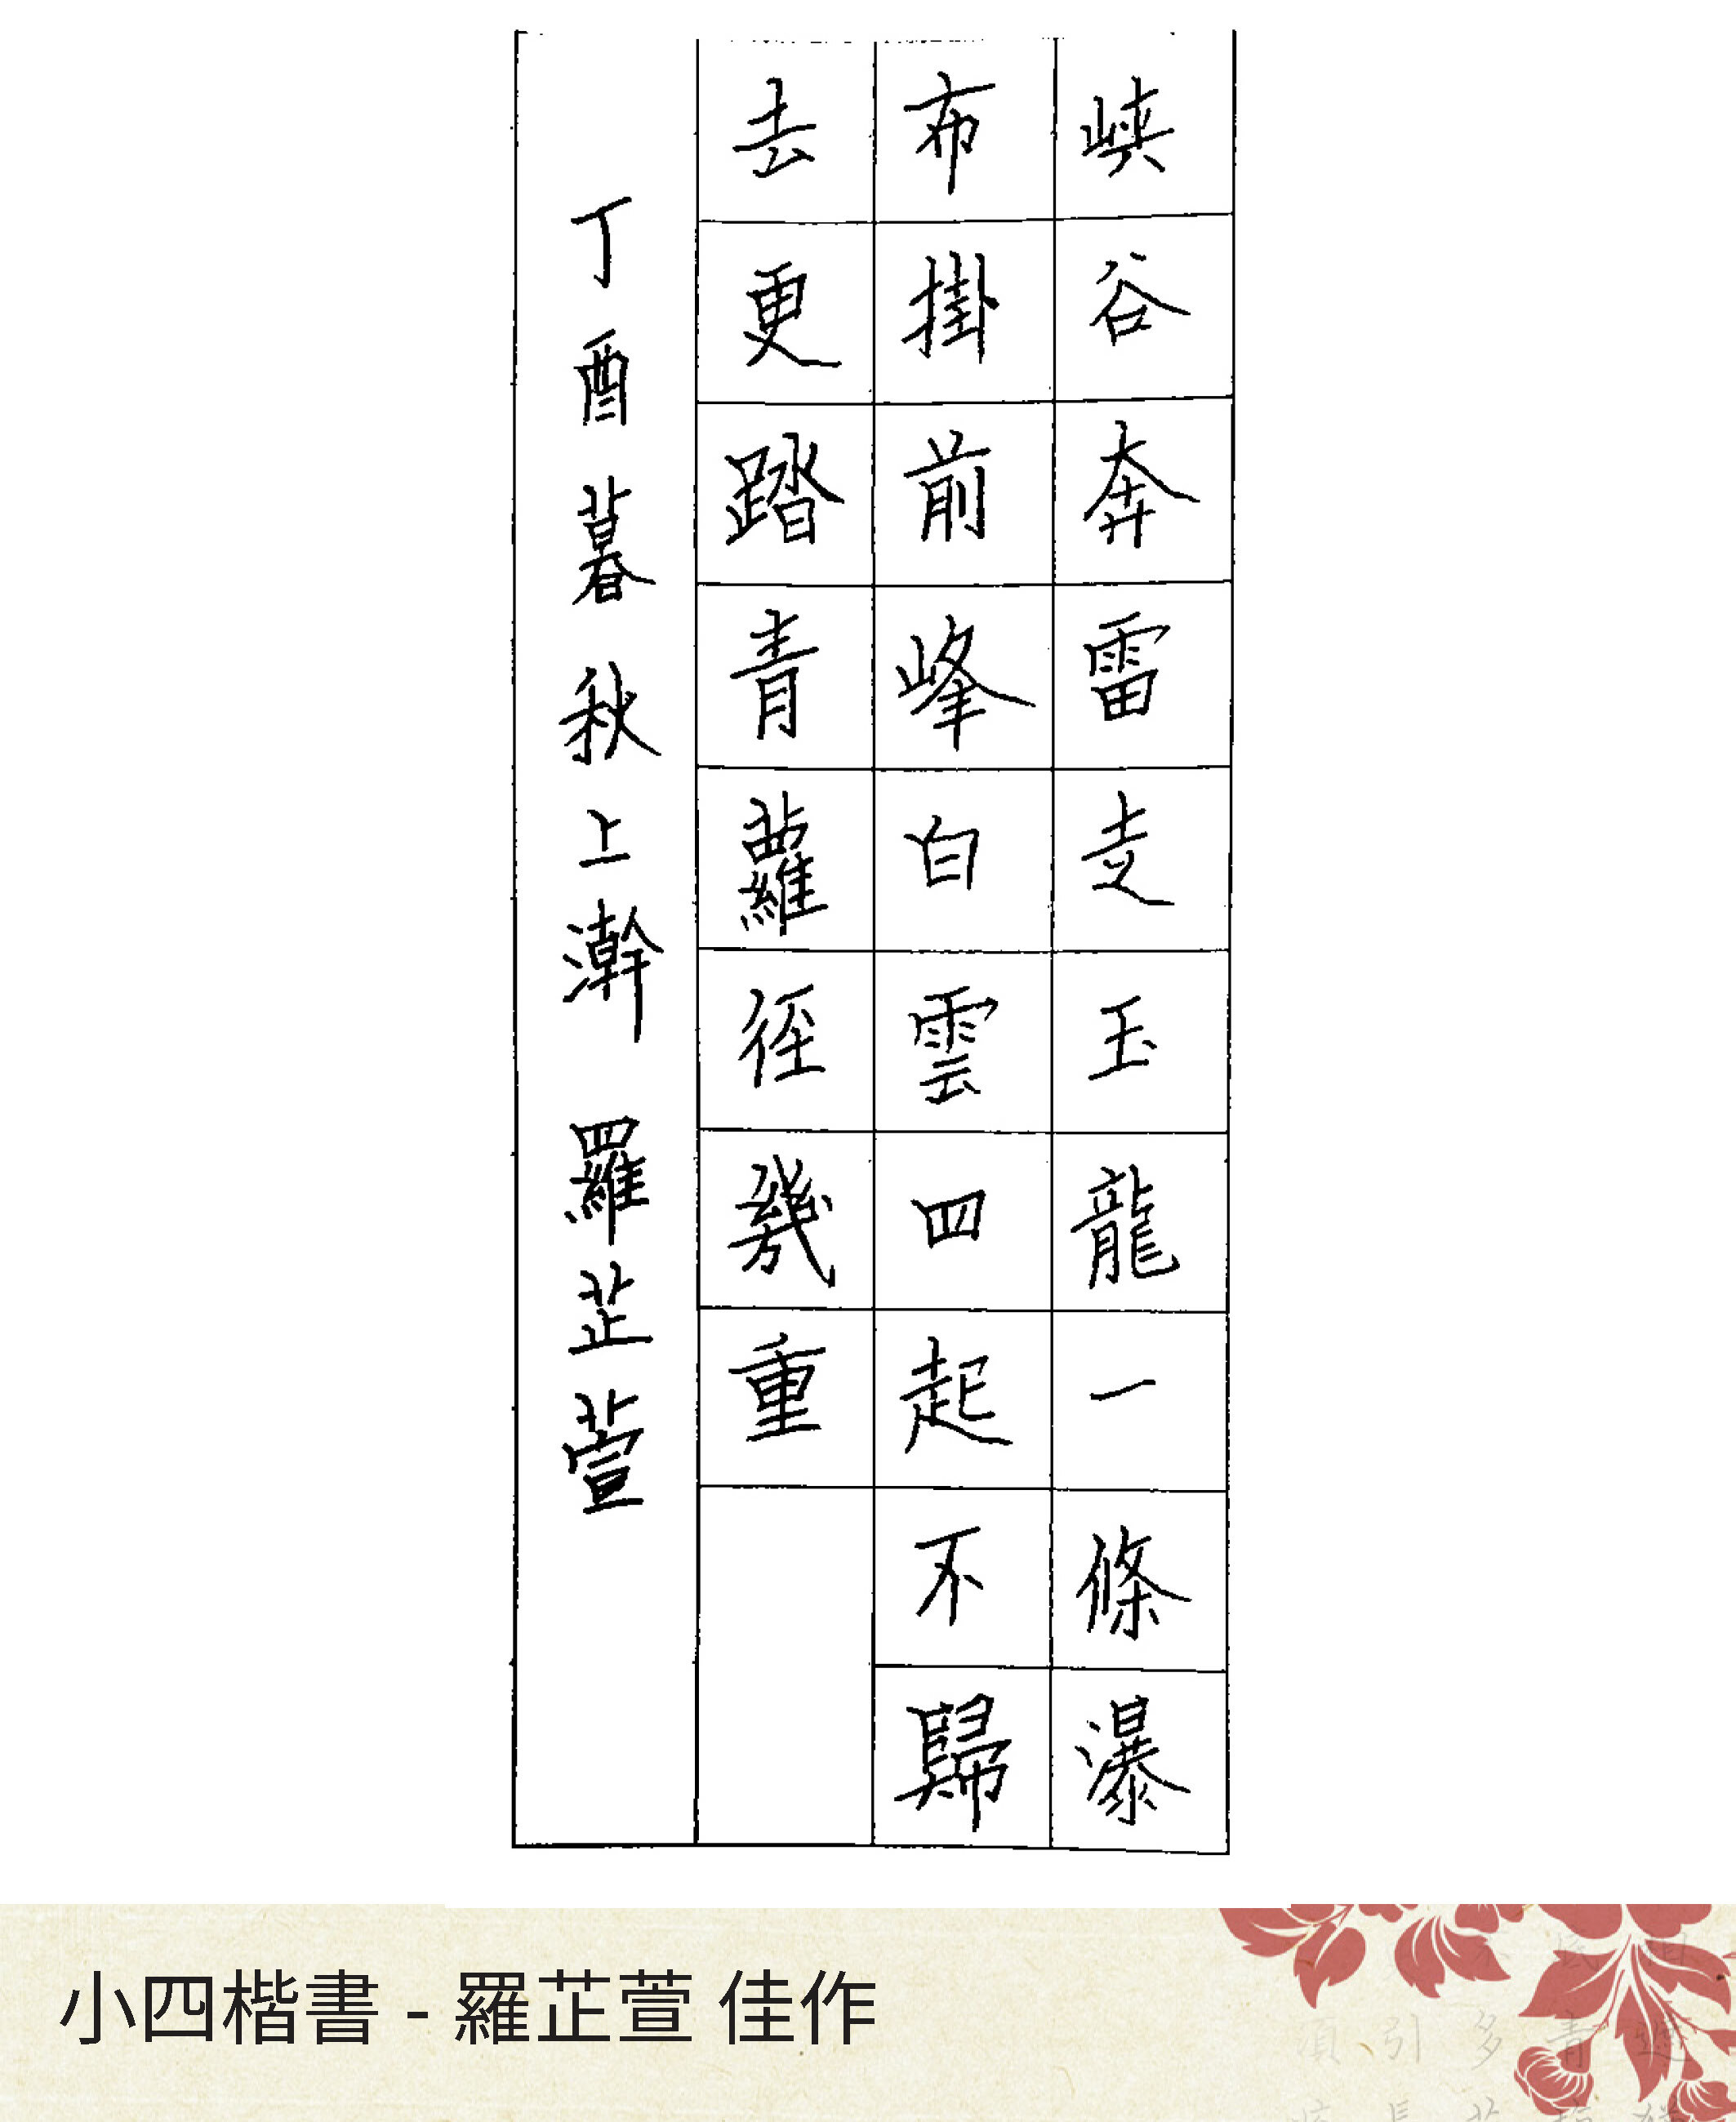 峽谷奔雷走玉龍一條瀑
布掛前峰白雲四起不歸
去更踏青蘿徑幾重
丁酉暮秋上澣 羅芷萱
小四楷書 - 羅芷萱 佳作